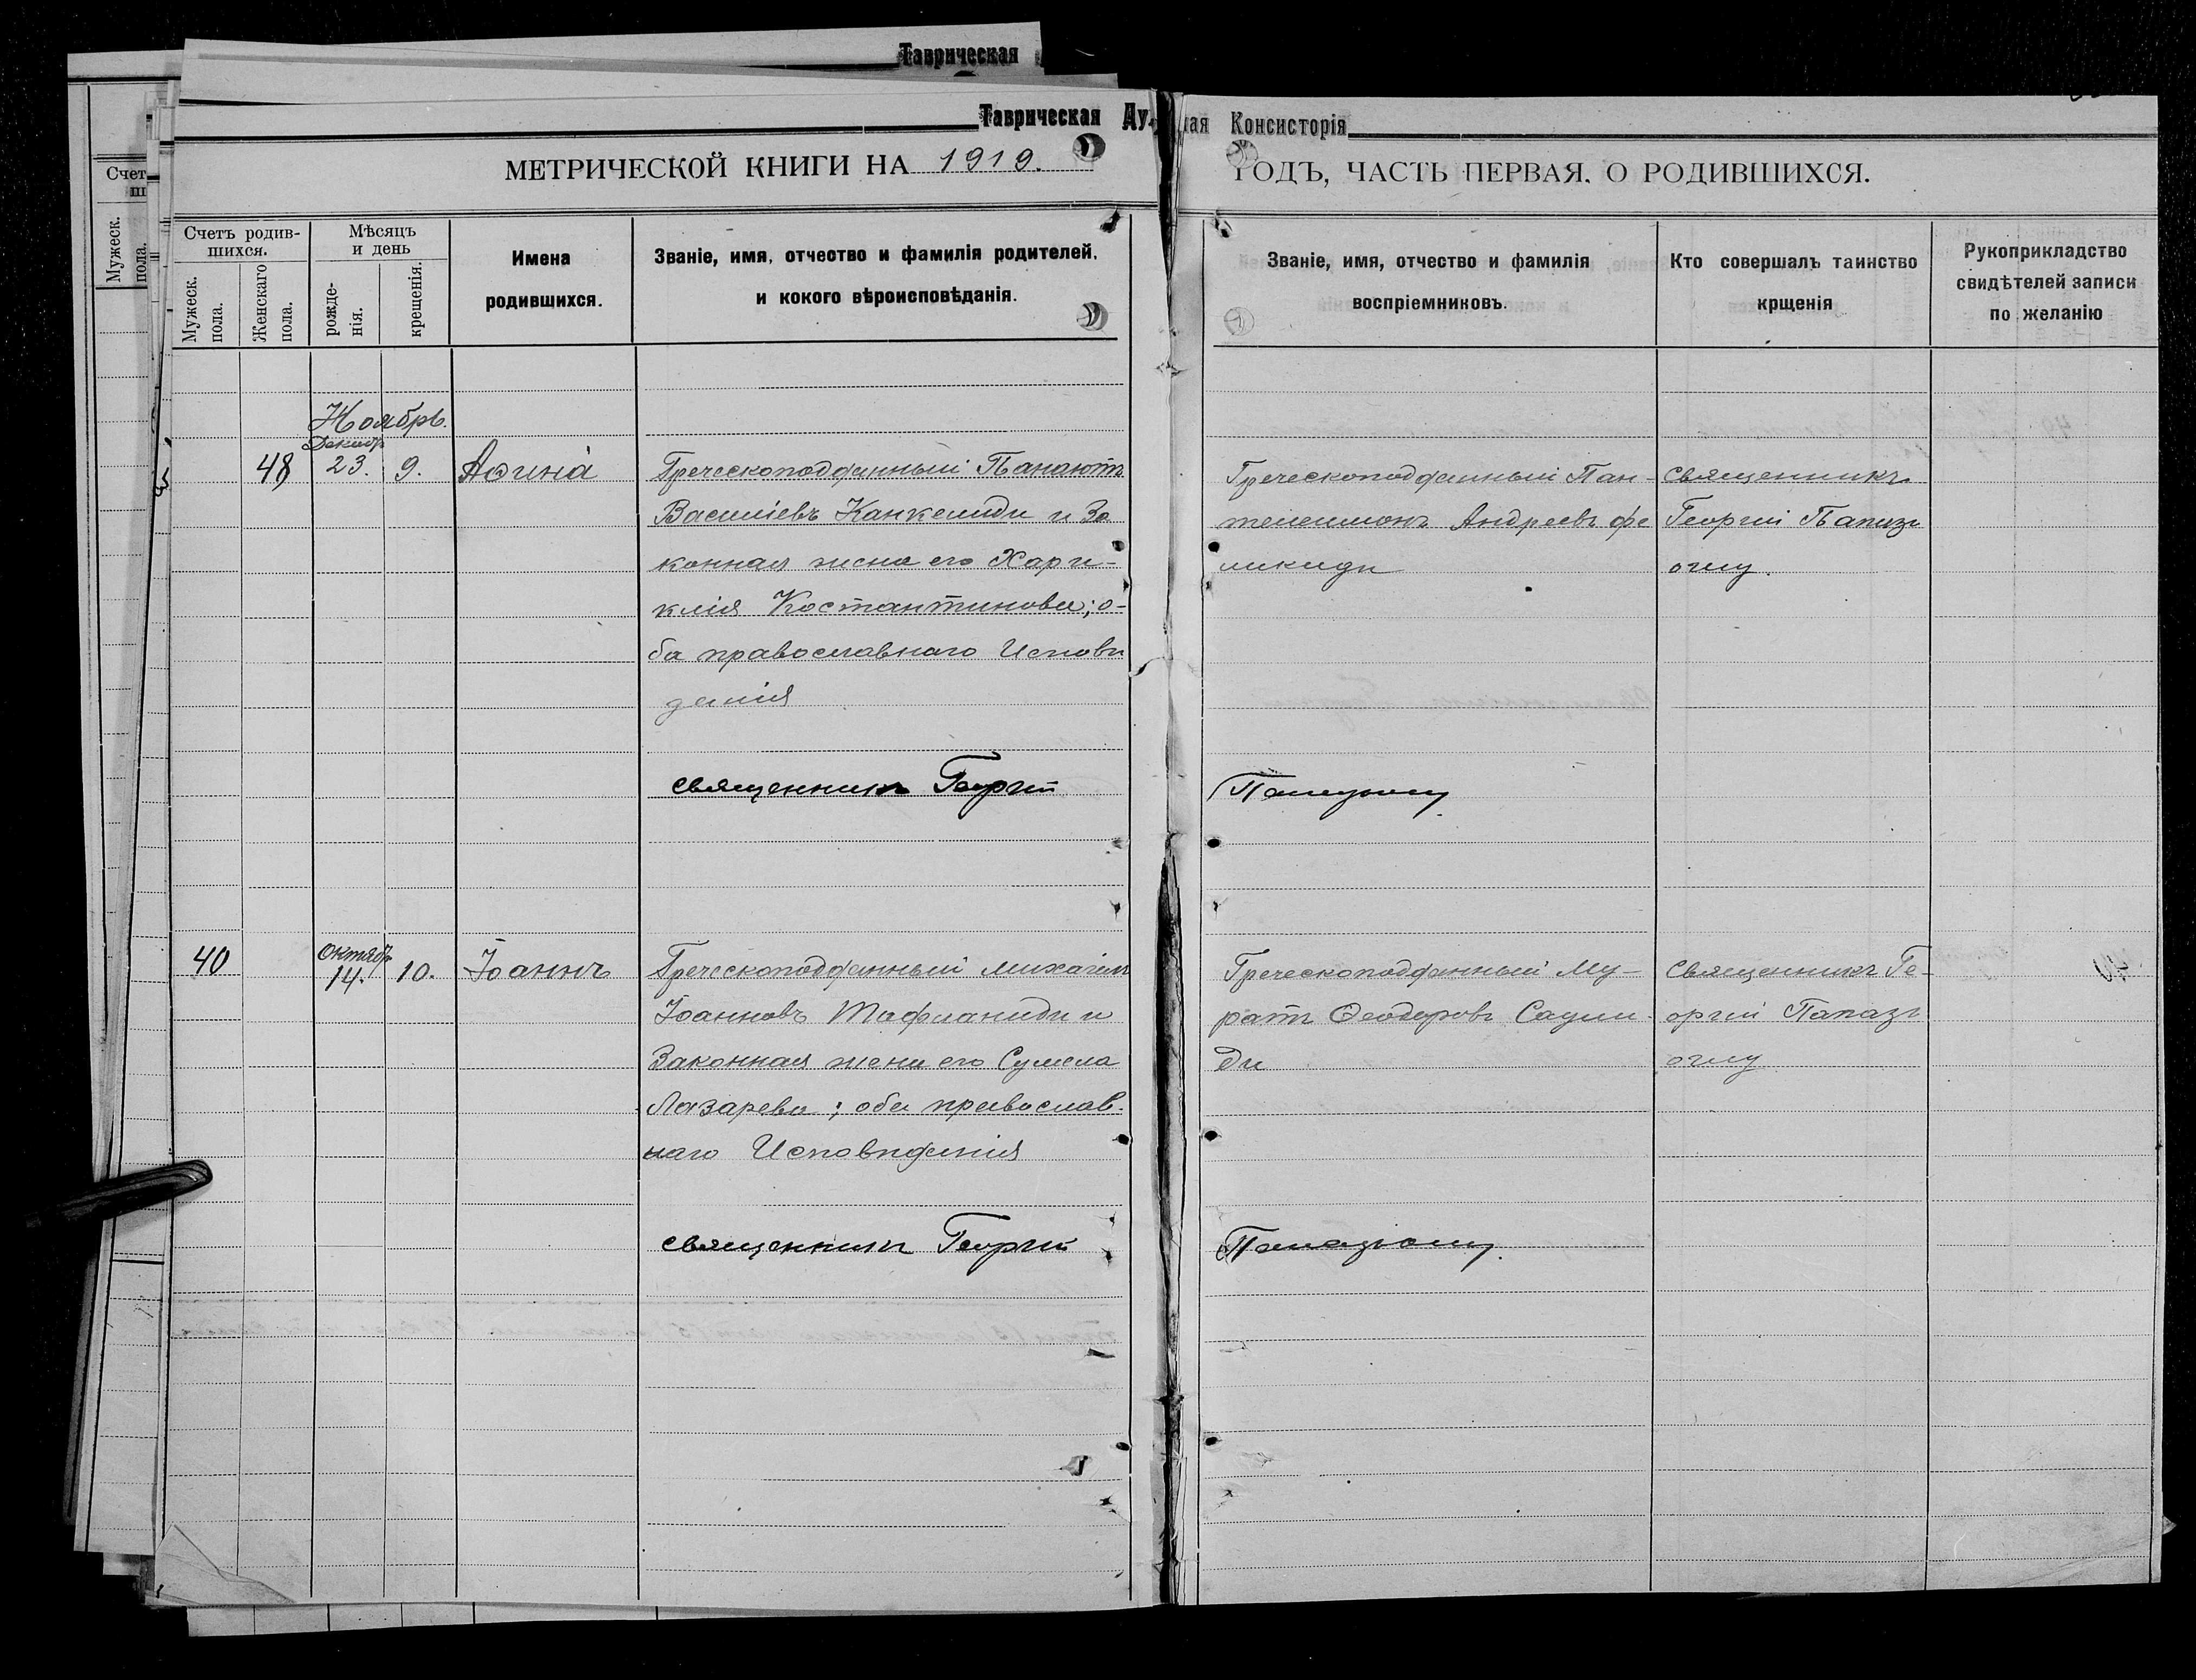 Таврическая
Таврическая Ду ная Консисторія
МЕТРИЧЕСКОЙ КНИГИ НА 1919. ГОДЪ, ЧАСТЬ ПЕРВАЯ. О РОДИВШИХСЯ.
Счет
ш
Мужеск.
пола.
Счетъ родив-
шихся.
Мужеск.
пола.
Женскаго
пола.
Мѣсяцъ
и день
рожде-
нія.
крещенія.
Имена
родившихся.
Званіе, имя, отчество и фамилія родителей,
и кокого вѣроисповѣданія.
Званіе, имя, отчество и фамилія
воспріемниковъ.
Кто совершалъ таинство
крщенія
Рукоприкладство
свидѣтелей записи
по желанію
Ноябрь.
Декабр
48 23. 9. Аѳина
Греческоподданный Панаіотъ
Василіевъ Канкелиди и За
конная жена его Хари-
клія Костантинова; о-
ба православнаго Исповѣ
данія
Греческоподданный Пан-
телеимонъ Андреевъ Фе
ликиди
Священникъ
Георгій Папазъ
оглу.
священникъ Георгій Папазоглу.
40 Октябр 14. 10. Іоаннъ
Греческоподданный Михаилъ
Іоанновъ Тафланиди и
Законная жена его Сумела
Лазарева; оба православ-
наго Исповѣданія
Греческоподданный Му-
ратъ Ѳеодоровъ Саули-
ди
Священникъ Ге-
оргій Папазъ
оглу
священникъ Георгій Папазъоглу.